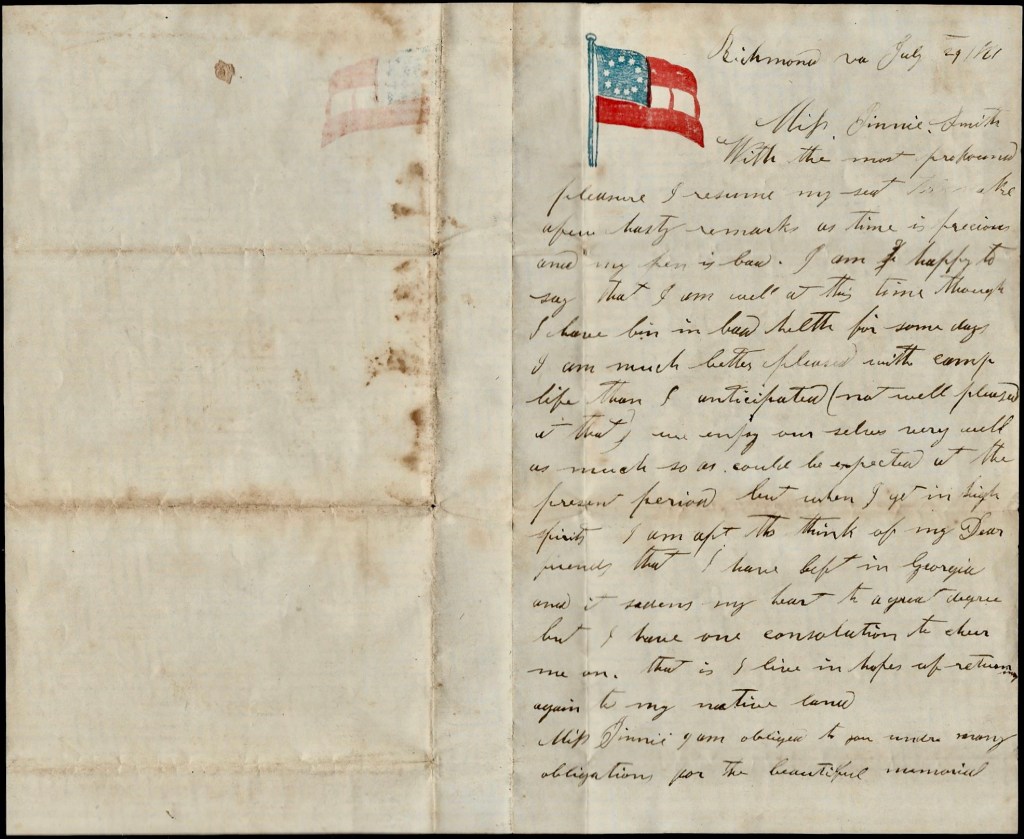 Richmond va July 29 1861
Miss. Jinnie. Smith
With the most profound
pleasure I resume my seat to make
afew hasty remarks as time is precious
and my pen is bad. I am happy to
say that I am well at this time though
I have bin in bad helth for some days
I am much better pleased with camp
life than I anticipated (not well pleased
at that) we enjoy our selves very well
as much so as could be expected at the
present period but when I get in high
spirits I am apt to think of my Dear
friends that I have left in Georgia
and it sadens my heart to a great degree
but I have one consolation to cheer
me on. that is I live in hopes of returning
again to my native land
Miss Jinnie I am obliged to you under many
obligations for the beautiful memorial